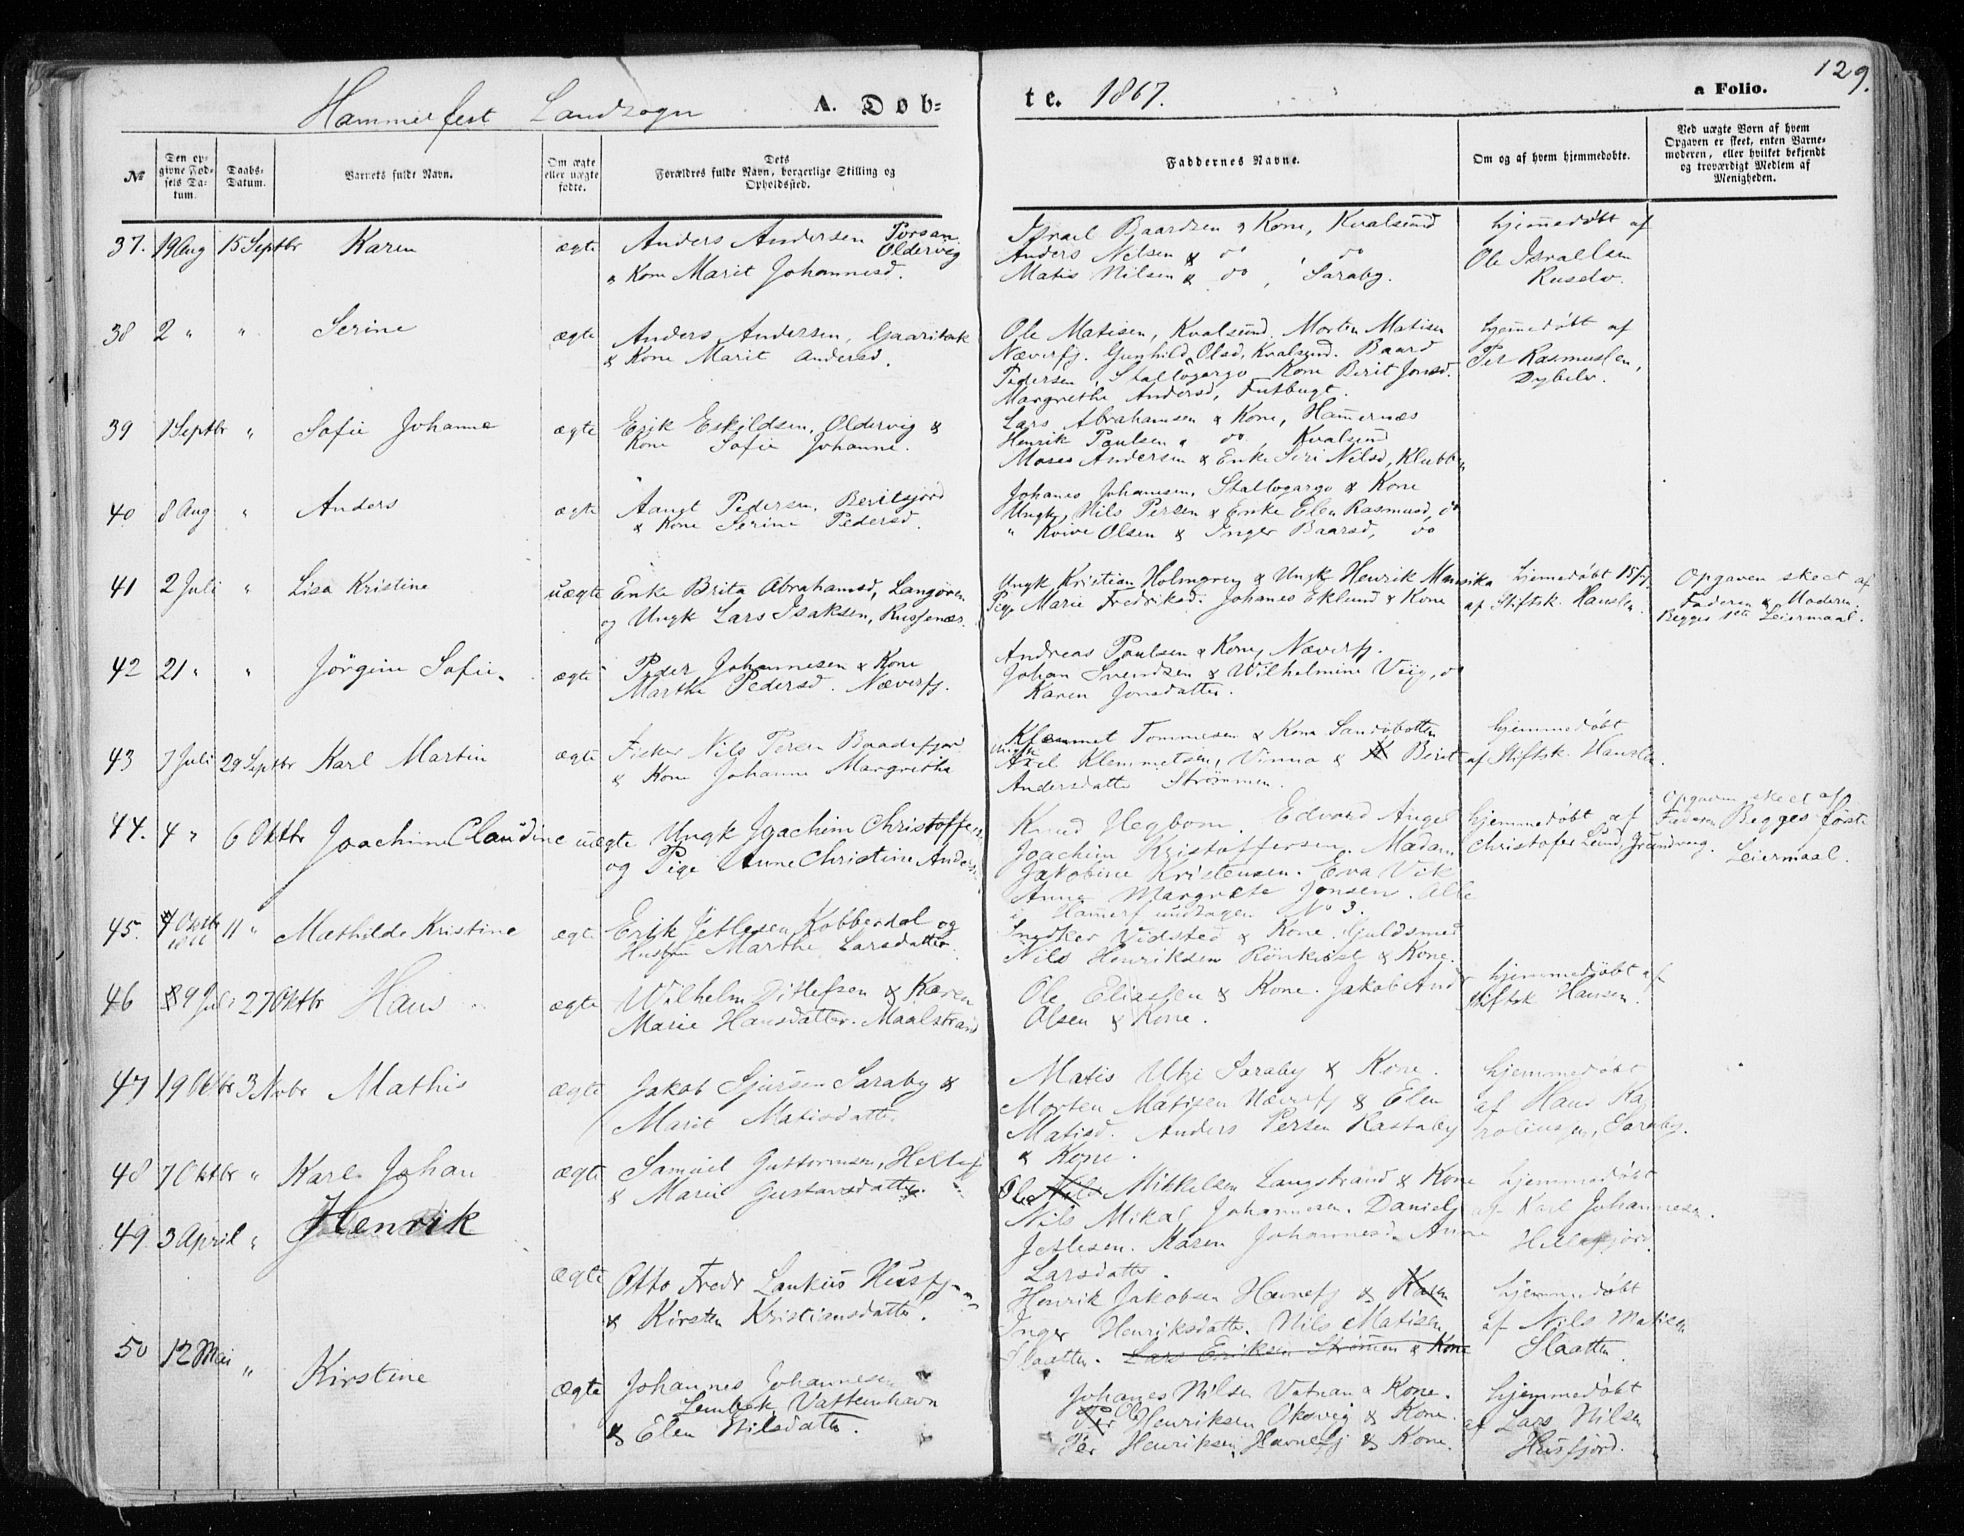 129.
Hammerfest Landsogn A. Døb- te. 1867. a Folio.
№
Den opgivne Fødsels Datum.
Daabs-Datum.
Barnets fulde Navn.
Om ægte eller uægte fødte.
Dets Forældres fulde Navn, borgerlige Stilling og Opholdssted.
Faddernes Navne.
Om og af hvem hjemmedøbte.
Ved uægte Børn af hvem Opgaven er skeet, enten Barnemoderen, eller hvilket bekjendt og troværdigt Medlem af Menigheden.
37. 19 Aug 15 Septbr Karen ægte
Anders Andersen Porsan. Oldervig
& Kone Marit Johannesd.
Israel Baardsen & Kone, Kvalsund
Anders Nelsen & do do
Matis Nilsen & do, Saraby.
hjemmedøbt af
Ole Israelsen
Ruselv.
38 2 " " Serine ægte
Anders Andersen,
& Kone Marit Andersd.
Ole Matisen, Kvalsund, Morten Matisen
Næverfj. Gunhild Olsd, Kvalsund. Baard
Pedersen, Stallogargo Kone Berit Jonsd.
Margrethe Andersd,
hjemmedøbt af
Per Rasmussen,
Dybelv.
39 1 Septbr " Sofie Johanne ægte
Erik Eskildsen, Oldervig &
Kone Sofie Johanne.
Lars Abrahamsen & Kone, Hamernæs
Henrik Paulsen & do, Kvalsund
Moses Andersen & Enke Siri Nilsd, Klubben
40 8 Aug " Anders ægte
Pedersen,
& Kone Serine Pedersd.
Johanes Johanesen, Stallogargo & Kone
Ungk, Nils Persen & Enke Elen Rasmusd, do
" Olsen & Inger Baarsd, do
41 2 Juli " Lisa Kristine uægte
Enke Brita Abrahamsd, Langøren
og Ungk Lars Isaksen,
Ungk Kristian Holmgren & Ungk Henrik
Pige Marie Fredriksd. Johanes Eklund & Kone
hjemedøbt 15/7
af Stiftsk. Hansen.
Opgaven skeet af
Faderen & Moderen.
Begges 1ste Leiermaal.
42 21 " " Jörgine Sofie. ægte
Peder Johannesen & Kone
Marthe Pedersd. Næverfj.
Andreas Paulsen & Kone, Næverfj.
Johan Svendsen & Wilhelmine
Karen Jonsdatter.
43 7 Juli 29 Septbr Karl Martin ægte
Fisker Nils Persen
& Kone Johanne Margrethe
Klemmet Tommesen & Kone
Ungk Axel Klemmetsen, & Berit
Andersdatter Strømmen.
hjemmedøbt
af Stiftsk. Hansen.
44. 4 " 6 Oktbr Joachime Claudine uægte
Ungk Joachim Christoffers
og Pige Anne Christine Anders
Knud Hegbom. Edvard Angel
Joachim Kristoffersen. Madam
Jakobine Kristensen. Eva Vik
Anne Margrete Jensen. Alle
i Hamerf undtagen No 3.
hjemmedøbt af
Christofer Lund,
Opgaven skeet af
Faderen Begges første
Leiermaal.
45. 7 Oktbr 11 " Mathilde Kristine ægte
Erik Jetlesen Kobberdal og
Hustru Marthe Larsdatter.
Snedker Vidsted & Kone. Guldsmed
Nils Henriksen Rönkvist & Kone.
46 9 Juli 27 Oktbr Hans ægte
Wilhelm Ditlefsen & Karen
Marie Hansdatter. Maalstrand
Ole Eliassen & Kone. Jakob And
Olsen & Kone.
hjemmedøbt af
Stiftsk Hansen.
47 19 Oktbr 3 Nvbr Mathis ægte
Jakob Sjursen Saraby &
Marit Matisdatter.
Matis Utzi Saraby & Kone.
Morten Matisen Næverfj & Elen
Matisd. Anders Persen Rastaby
& Kone.
hjemmedøbt
af Hans Ka
Saraby.
48 7 Oktbr " Karl Johan ægte
Samuel Guttormsen,
& Marie Gustavsdatter.
Ole Mikkelsen Langstrand & Kone
Nils Mikal Johannesen. Daniel
Jetlesen. Karen Johannesd. Anne
Larsdatter.
hjemmedøbt
af Karl Johannesen.
Hellefjord.
49. 3 April " Henrik ægte
Otto Fredr Lankus Husfj
& Kirsten Kristiansdatter.
Henrik Jakobsen Havnefj & Karen
Inger Henriksdatter. Nils Matisen
Slaatten. Lars Eriksen Strømmen & Kone
hjemmedøbt
af Nils Matisen
Slaatten.
50 12 Mai " Kirstine ægte
Johannes Johannesen
Lembek, Vattenhavn
& Elen Nilsdatter.
Johanes Nilsen Vatnan & Kone.
Per Ole Henriksen Oksvig & Kone.
Per Henriksen Havnefj & Kone.
hjemmedøbt
af Lars Nilsen
Husfjord.